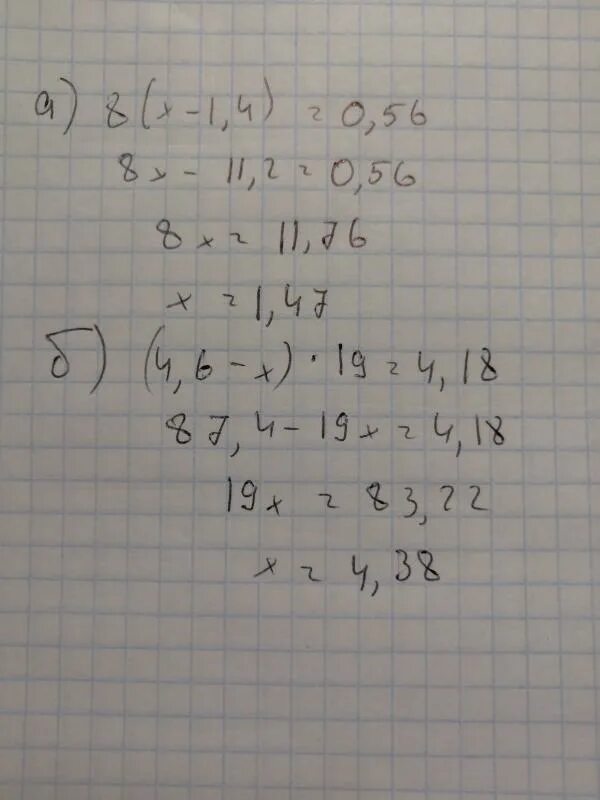 а) 8(x-1,4) = 0,56
8x - 11,2 = 0,56
8x = 11,76
x = 1,47
б) (4,6-x)·19=4,18
87,4-19x=4,18
19x = 83,22
x = 4,38